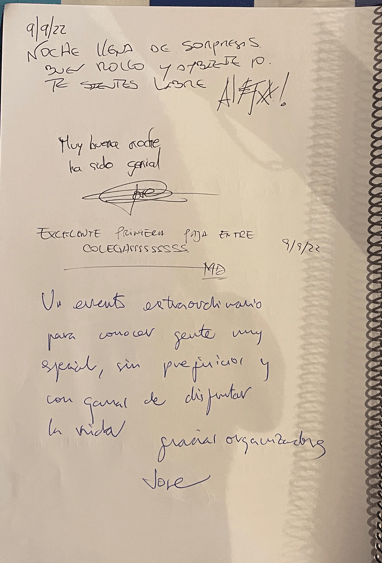 9/9/22
NOCHE LLENA DE SORPRESAS
BUEN ROLLO Y AMBIENTE
TE SIENTES LIBRE
Muy buena noche,
ha sido genial
Jose
EXCELENTE PRIMERA PAJA ENTRE
COLEGASSSSSSSS
9/9/22
MD
Un evento extraordinario
para conocer gente muy
especial, sin prejuicios y
con ganas de disfrutar
la vida
gracias organizadores
Jose